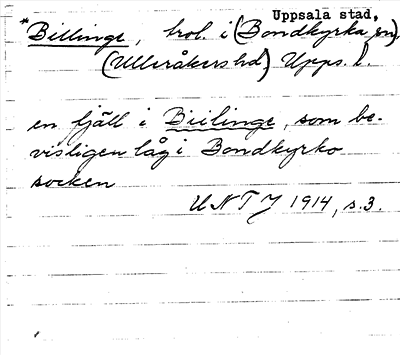 Uppsala stad,
*Billinge, trol. i (Bondkyrka sn),
(Ulleråkers hd) Upps. l.
en fjäll i Biilinge, som be-
visligen låg i Bondkyrko
socken
UNTJ 1914, s. 3.